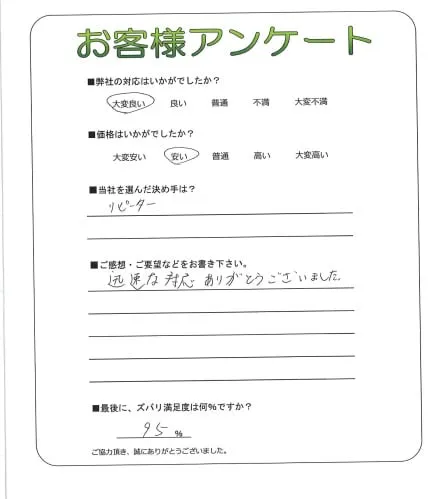 お客様アンケート
■弊社の対応はいかがでしたか？
大変良い 良い 普通 不満 大変不満
■価格はいかがでしたか？
大変安い 安い 普通 高い 大変高い
■当社を選んだ決め手は？
リピーター
■ご感想・ご要望などをお書き下さい。
迅速な対応ありがとうございました。
■最後に、ズバリ満足度は何％ですか？
95 %
ご協力頂き、誠にありがとうございました。